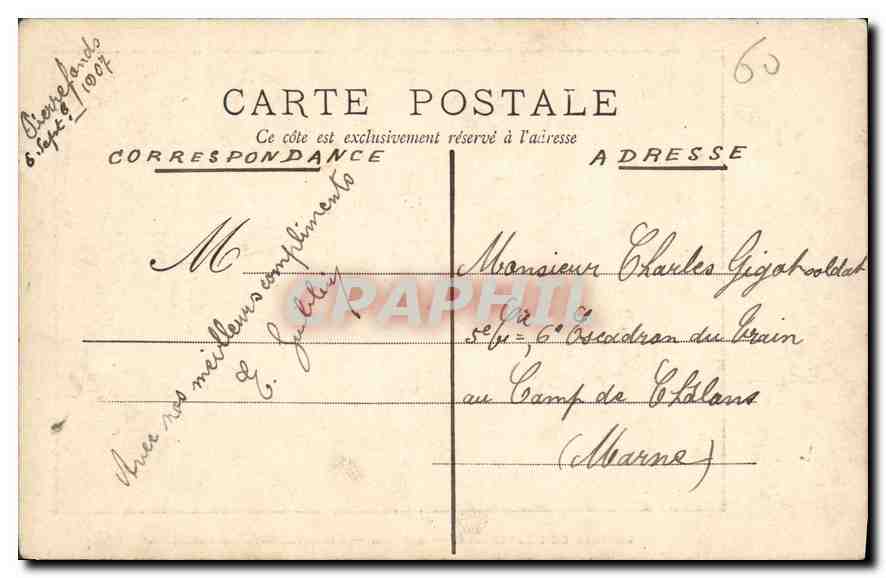 Pierrefonds
6. Sept. 1907
60
CARTE POSTALE
Ce côte est exclusivement réservé à l'adresse
CORRESPONDANCE
ADRESSE
M
Avec nos meilleurs compliments
CPAPHIL
Monsieur Charles Gigot soldat
5e Cie, 6e Escadron du Train
au Camp de Châlons
(Marne)